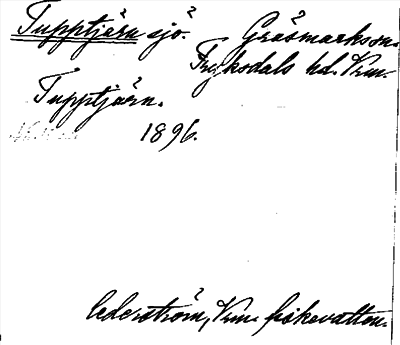 Tupptjärn sjö. Gräsmarkssn.
Fryksdals hd. Vrm.
Tupptjärn.
1896.
Cederström, Vrm. fiskevatten.